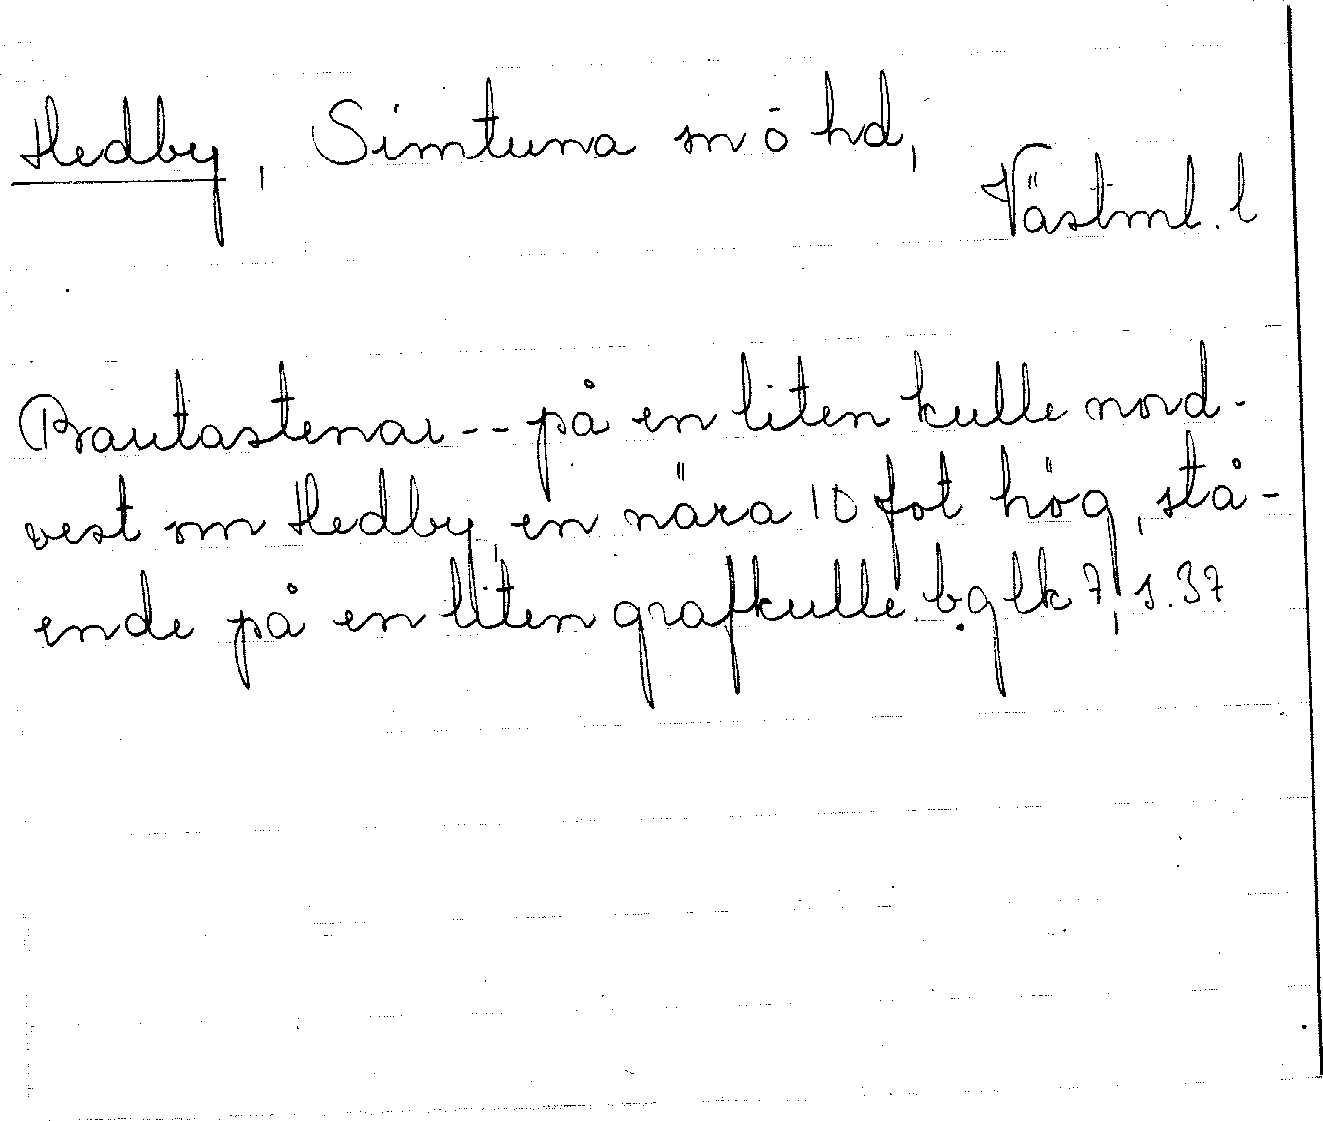 Hedby, Simtuna sn ö hd,
Västml. l
Bautastenar -- på en liten kulle nord-
vest om Hedby, en nära 10 fot hög, stå-
ende på en liten grafkulle. bglk 7, s. 37